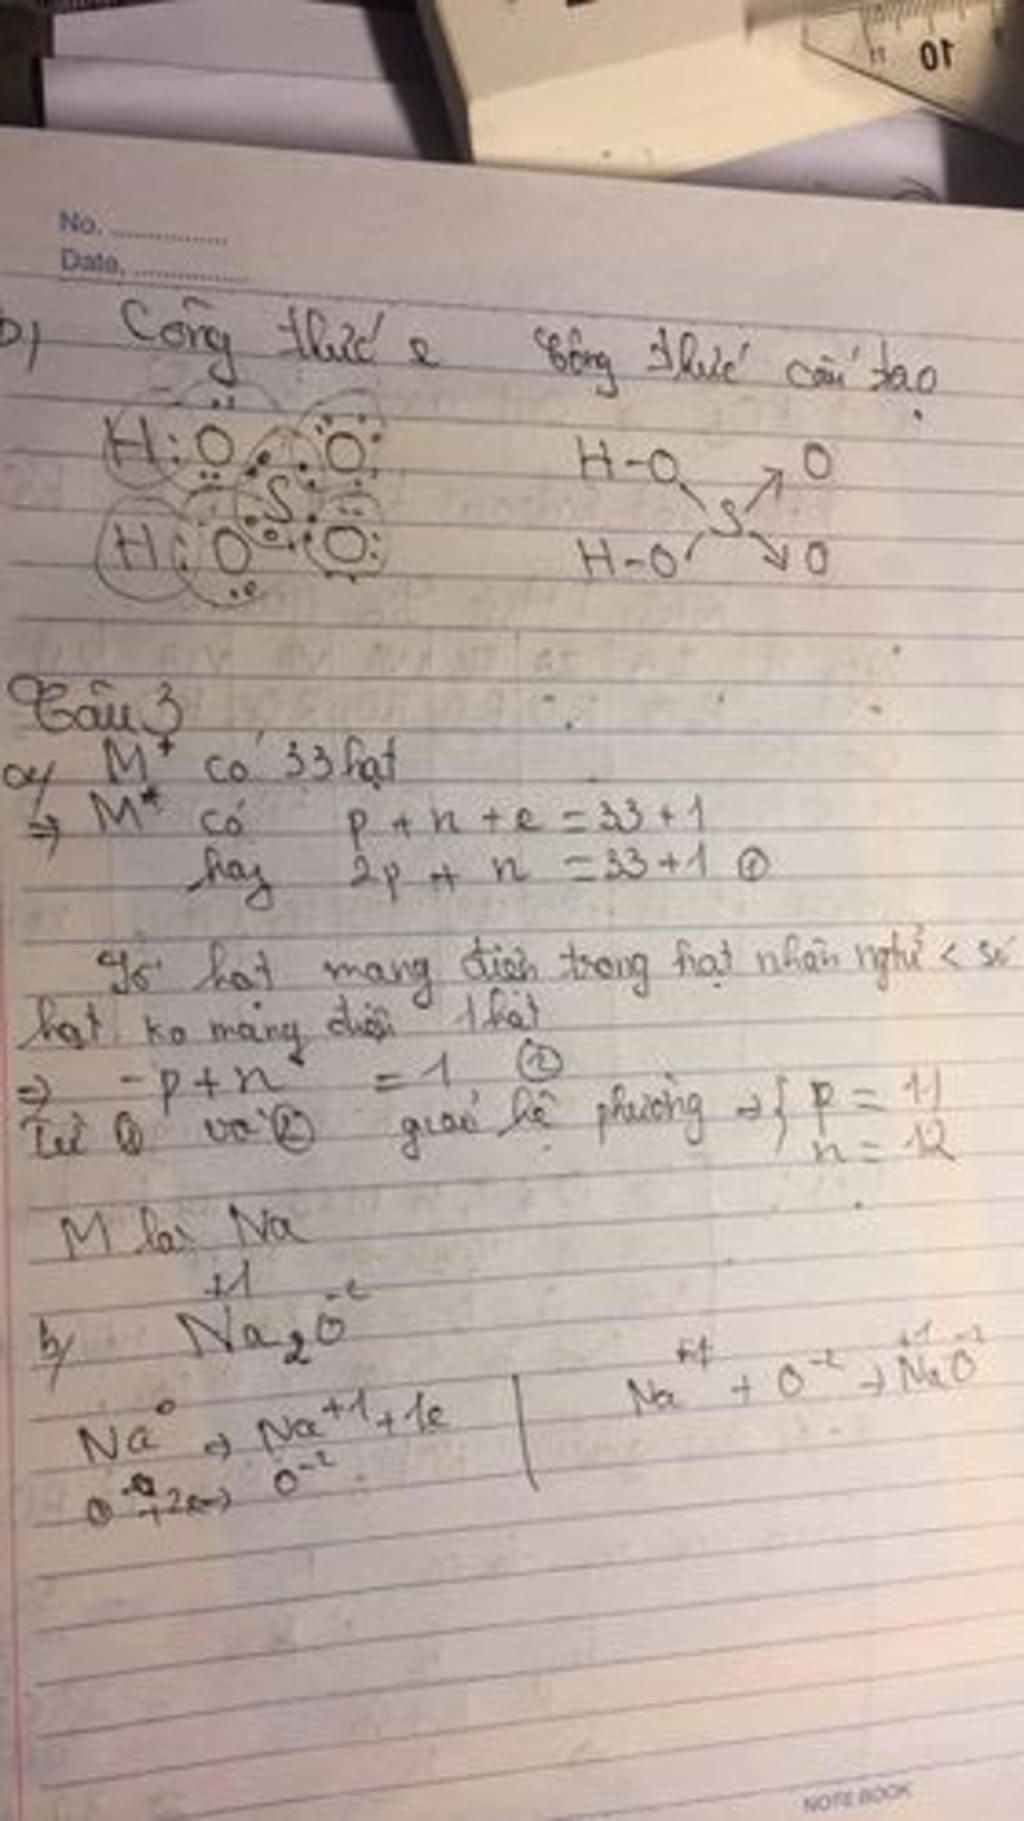 10
No. ................
Date. ................
b) Công thức e Công thức cấu tạo
H : O O H-O O
S S
H : O O H-O O
Câu 3
a) M⁺ có 33 hạt
=> M⁺ có p + n + e = 33 + 1
hay 2p + n = 33 + 1 ①
Số hạt mang điện trong hạt nhân ngtử < số
hạt ko mang điện 1 hạt
=> -p + n = 1 ②
Từ ① và ② giải hệ phường => { p = 11
n = 12
M là Na
b) Na₂⁺¹O⁻²
Na⁺¹ + O⁻² → Na⁺¹O⁻²
Na⁰ → Na⁺¹ + 1e
O⁰ + 2e → O⁻²
NOTE BOOK